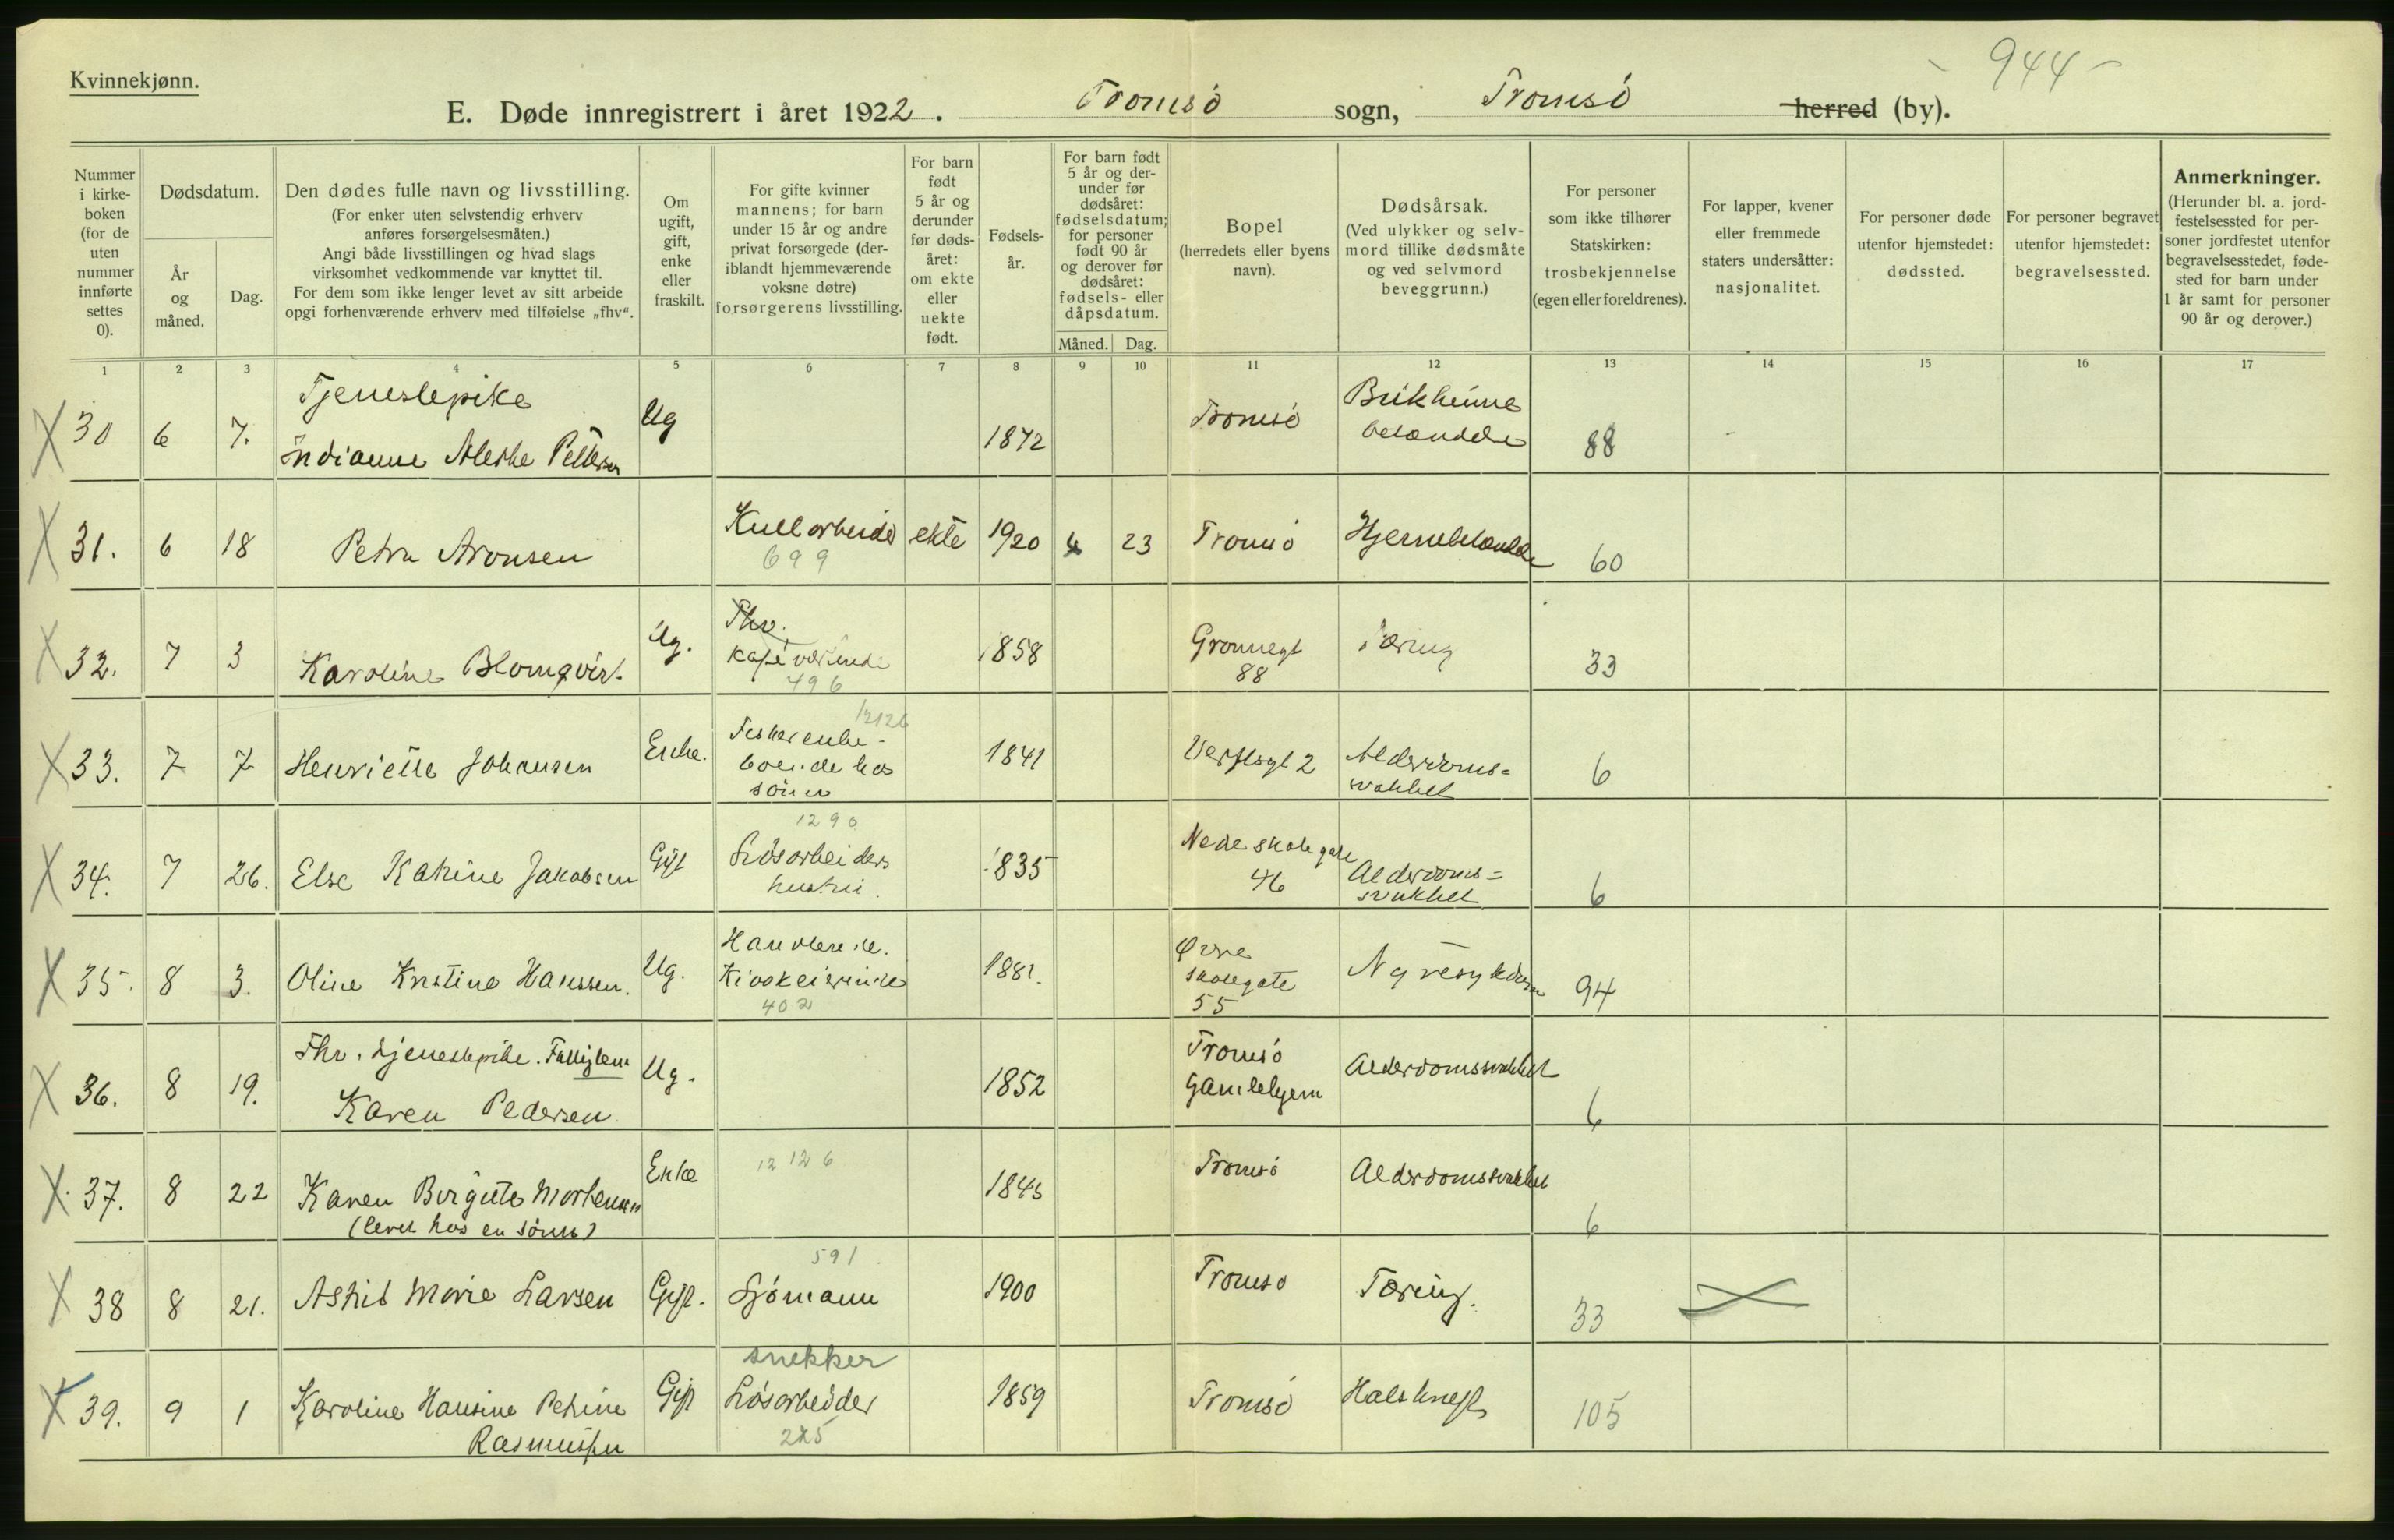 - 944 -
Kvinnekjønn.
E. Døde innregistrert i året 1922. Tromsö sogn, Tromsö herred (by).
Nummer i kirke-boken (for de uten nummer innførte settes 0).
Dødsdatum.
År og måned.
Dag.
Den dødes fulle navn og livsstilling.
(For enker uten selvstendig erhverv anføres forsørgelsesmåten.)
Angi både livsstillingen og hvad slags virksomhet vedkommende var knyttet til.
For dem som ikke lenger levet av sitt arbeide opgi forhenværende erhverv med tilføielse „fhv“.
Om ugift, gift, enke eller fraskilt.
For gifte kvinner mannens; for barn under 15 år og andre privat forsørgede (deriblandt hjemmeværende voksne døtre) forsørgerens livsstilling.
For barn født 5 år og derunder før dødsåret: om ekte eller uekte født.
Fødselsår.
For barn født 5 år og derunder før dødsåret: fødselsdatum; for personer født 90 år og derover før dødsåret: fødsels- eller dåpsdatum.
Måned.
Dag.
Bopel
(herredets eller byens navn).
Dødsårsak.
(Ved ulykker og selvmord tillike dødsmåte og ved selvmord beveggrunn.)
For personer som ikke tilhører Statskirken: trosbekjennelse (egen eller foreldrenes).
For lapper, kvener eller fremmede staters undersåtter: nasjonalitet.
For personer døde utenfor hjemstedet: dødssted.
For personer begravet utenfor hjemstedet: begravelsessted.
Anmerkninger.
(Herunder bl. a. jordfestelsessted for personer jordfestet utenfor begravelsesstedet, fødested for barn under 1 år samt for personer 90 år og derover.)
1 2 3 4 5 6 7 8 9 10 11 12 13 14 15 16 17
X 30 6 7. Tjenestepike Indianne Pettersen Ug 1872 Tromsö Bukhinne betændelse 88
X 31. 6 18 Petra Aronsen Kullarbeider 699 ekte 1920 4 23 Tromsö Hjernebetændelse 60
X 32. 7 3 Karoline Blomqvist Ug. Fhv. kafévertinde 496 1858 Grønnegt 88 Tæring 33
X 33. 7 7 Henriette Johansen Enke. 12126 Fiskerenke - boende hos sönn 1841 Verftsgt 2 Alderdoms= svakhet 6
X 34. 7 26. Else Katrine Jakobsen Gift 1290 Lösarbeiders hustru. 1835 Nedre skolegate 46 Alderdoms= svakhet 6
X 35. 8 3. Oline Kristine Hanssen. Ug. Handlende. Kioskeierinde 402 1881. Øvre skolegate 55 Nyresykdom 94
X 36. 8 19. Fhv. tjenestepike. Fattiglem Karen Pedersen. Ug. 1852 Tromsö Gamlehjem Alderdomssvakhet 6
X 37. 8 22 Karen Birgitte Mortensen (levet hos en sönn) Enke 12126 1843 Tromsö Alderdomssvakhet 6
X 38 8 21. Astrid Marie Larsen Gift. 591 Sjömann 1900 Tromsö Tæring. 33
X 39. 9 1 Karoline Hansine Petrine Rasmussen Gift snekker Lösarbeider 225 1859 Tromsö Halskreft 105